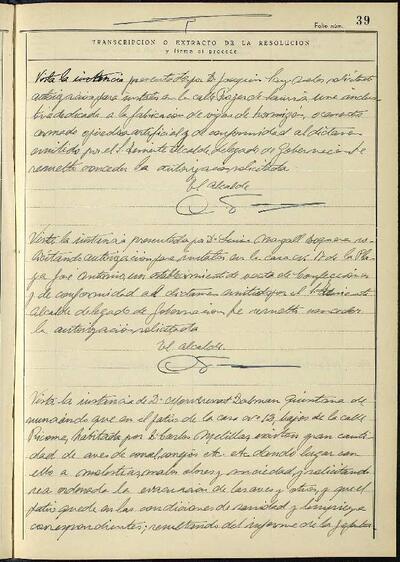 Folio núm. 39
TRANSCRIPCIÓN O EXTRACTO DE LA RESOLUCIÓN
y firma si procede
Vista la instancia presentada por D. Joaquín solicitando
autorización para instalar en la calle Roger de Lauria una indus-
tria dedicada a la fabricación de vigas de hormigón, o cemento
armado o piedra artificial y de conformidad al dictamen
emitido por el Sr. Teniente Alcalde delegado de Gobernación, he
resuelto conceder la autorización solicitada
El Alcalde
Vista la instancia presentada por Dª Magall so-
licitando autorización para instalar en la casa nº 17 de la Pla-
za José Antonio, un establecimiento de venta de Confecciones
y de conformidad al dictamen emitido por el Teniente
Alcalde delegado de Gobernación, he resuelto conceder
la autorización solicitada
El Alcalde.
Vista la instancia de Dª Montserrat Dalmau Quintana de-
nunciando que en el patio de la casa nº 13, bajos de la calle
habitada por D. Carlos existen gran canti-
dad de aves de corral, conejos etc. etc. dando lugar con
ello a molestias, malos olores y suciedad, y solicitando
sea ordenada la evacuación de las aves y otros, y que el
patio quede en las condiciones de sanidad y limpieza
correspondientes; resultando del informe de la Jefatura